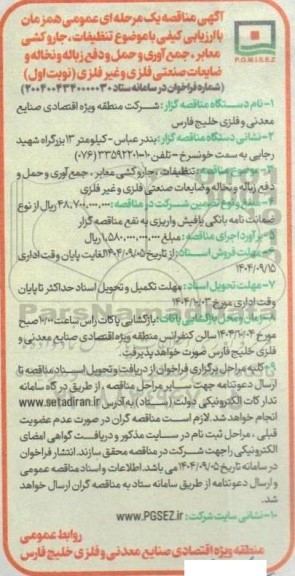 آگهی مناقصه یک مرحله ای عمومی همزمان
با ارزیابی کیفی با موضوع تنظیفات ، جاروکشی
معابر ، جمع آوری و حمل و دفع زباله و نخاله و
ضایعات صنعتی فلزی و غیر فلزی (نوبت اول)
P.G.M.I.S.E.Z
(شماره فراخوان در سامانه ستاد ۲۰۰۴۰۰۴۳۴۰۰۰۰۰۳۰)
۱- نام دستگاه مناقصه گزار: شرکت منطقه ویژه اقتصادی صنایع
معدنی و فلزی خلیج فارس
۲- نشانی دستگاه مناقصه گزار: بندر عباس - کیلومتر ۱۳ بزرگراه شهید
رجایی به سمت خونسرخ - تلفن ۱۰-۳۳۵۹۲۲۰۱ (۰۷۶)
۳- موضوع مناقصه: تنظیفات ، جاروکشی معابر ، جمع آوری و حمل و
دفع زباله و نخاله و ضایعات صنعتی فلزی و غیر فلزی
۴- مبلغ و نوع تضمین شرکت در مناقصه: ۴۸,۷۰۰,۰۰۰,۰۰۰ ریال از نوع
ضمانت نامه بانکی یا فیش واریزی به نفع مناقصه گزار
۵- برآورد اجرای مناقصه: مبلغ ۱,۵۸۰,۰۰۰,۰۰۰,۰۰۰ ریال
۶- مهلت فروش اسناد: از تاریخ ۱۴۰۴/۰۹/۰۵ لغایت پایان وقت اداری
۱۴۰۴/۰۹/۱۵
۷- مهلت تحویل اسناد: مهلت تکمیل و تحویل اسناد حداکثر تا پایان
وقت اداری مورخ ۱۴۰۴/۱۰/۰۳
۸- زمان و محل بازگشایی پاکات: بازگشایی پاکات راس ساعت ۱۰:۰۰ صبح
مورخ ۱۴۰۴/۱۰/۰۴ سالن کنفرانس منطقه ویژه اقتصادی صنایع معدنی و
فلزی خلیج فارس صورت خواهد پذیرفت.
۹- کلیه مراحل برگزاری فراخوان از دریافت و تحویل اسناد مناقصه تا
ارسال دعوتنامه جهت سایر مراحل مناقصه ، از طریق درگاه سامانه
تدارکات الکترونیکی دولت (ستاد) به آدرس www.setadiran.ir
انجام خواهد شد. لازم است مناقصه گران در صورت عدم عضویت
قبلی ، مراحل ثبت نام در سایت مذکور و دریافت گواهی امضای
الکترونیکی را جهت شرکت در مناقصه محقق سازند. انتشار فراخوان
در سامانه تاریخ ۱۴۰۴/۰۹/۰۵ می باشد. اطلاعات و اسناد مناقصه عمومی
و ارسال دعوتنامه از طریق سامانه ستاد به مناقصه گران ارسال خواهد
شد.
۱۰- نشانی سایت شرکت: www.PGSEZ.ir
روابط عمومی
منطقه ویژه اقتصادی صنایع معدنی و فلزی خلیج فارس